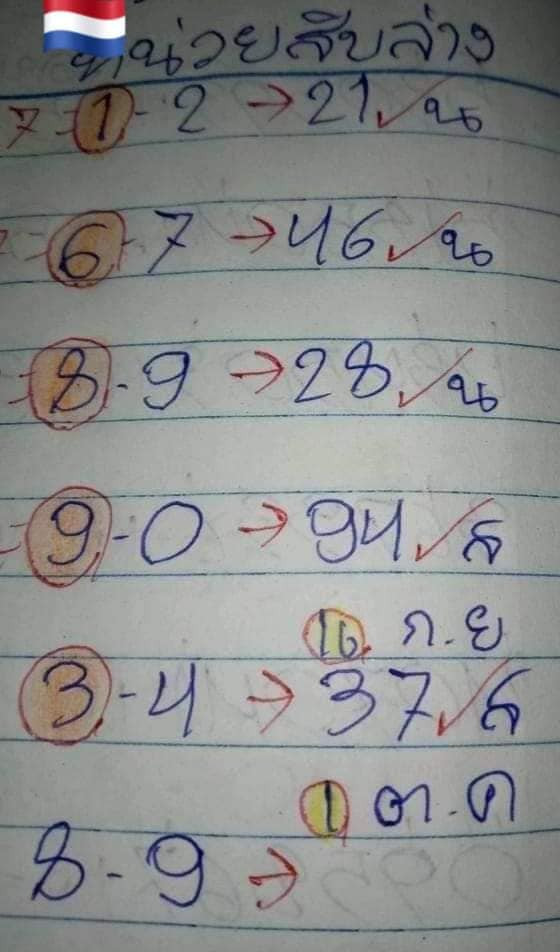 หน่วยสิบล่าง
7 = 1 - 2 → 21 ✓ น
= 6 - 7 → 46 ✓ น
= 8 - 9 → 28 ✓ น
= 9 - 0 → 94 ✓ ส
16 ก.ย
3 - 4 → 37 ✓ ส
1 ต.ค
8 - 9 →